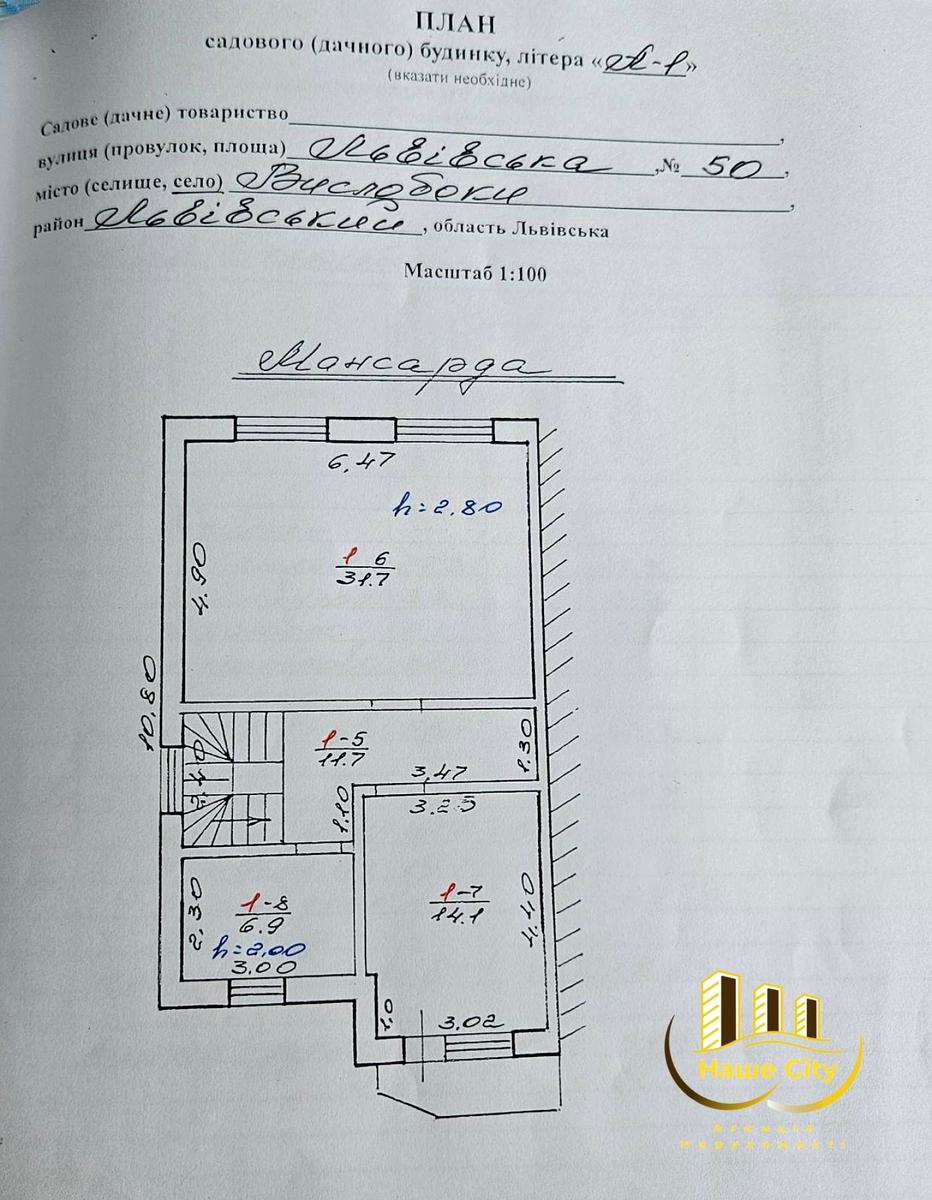 ПЛАН
садового (дачного) будинку, літера «А-1»
(вказати необхідне)
Садове (дачне) товариство,
вулиця (провулок, площа) Львівська, № 50,
місто (селище, село) Вислобоки,
район Львівський, область Львівська
Масштаб 1:100
Мансарда
6,47
h=2,80
4.90
1 6
31.7
10,80
1-5
11.7
1.30
2.40
3,47
3.25
1.10
1-8
6.9
2.30
h=2,00
3,00
1-7
14.1
4.40
1,0
3,02
Наше City
Агенція
нерухомості